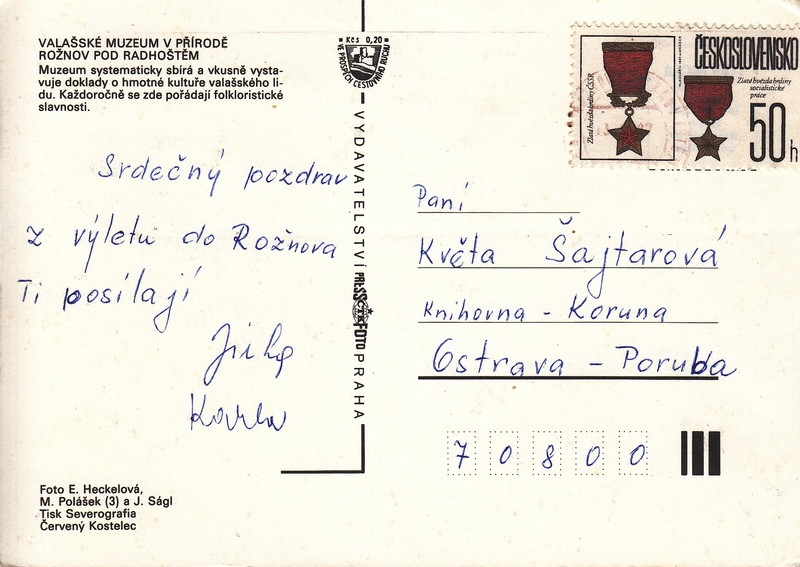 VALAŠSKÉ MUZEUM V PŘÍRODĚ
ROŽNOV POD RADHOŠTĚM
Muzeum systematicky sbírá a vkusně vysta-
vuje doklady o hmotné kultuře valašského li-
du. Každoročně se zde pořádají folkloristické
slavnosti.
Srdečný pozdrav
z výletu do Rožnova
Ti posílají
Jirka
Karla
Foto E. Heckelová,
M. Polášek (3) a J. Ságl
Tisk Severografia
Červený Kostelec
Kčs 0,20
VE PROSPĚCH CESTOVNÍHO RUCHU
VYDAVATELSTVÍ PRESSFOTO PRAHA
ČTK
Zlatá hvězda hrdiny ČSSR
ČESKOSLOVENSKO
Zlatá hvězda hrdiny
socialistické
práce
50h
Paní
Květa Šajtarová
Knihovna - Koruna
Ostrava - Poruba
70800